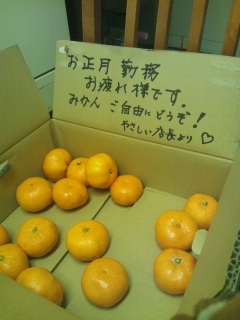 お正月 勤務
お疲れ様です.
みかん ご自由にどうぞ!
やさしい店長より♡